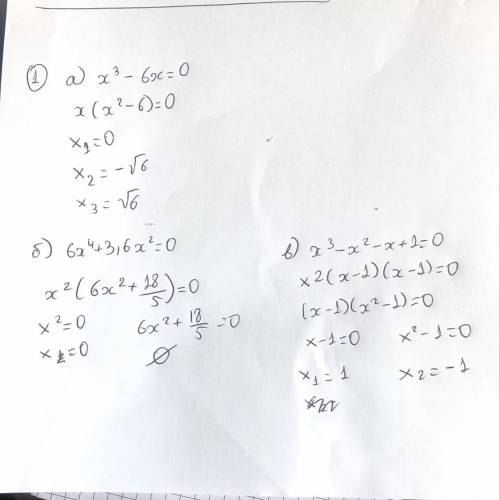 1 а) x³ - 6x = 0
x(x² - 6) = 0
x₁ = 0
x₂ = -√6
x₃ = √6
б) 6x⁴ + 3,6x² = 0
x²(6x² + 18/5) = 0
x² = 0 6x² + 18/5 = 0
x = 0 ∅
в) x³ - x² - x + 1 = 0
x2(x - 1)(x - 1) = 0
(x - 1)(x² - 1) = 0
x - 1 = 0 x² - 1 = 0
x₁ = 1 x₂ = -1